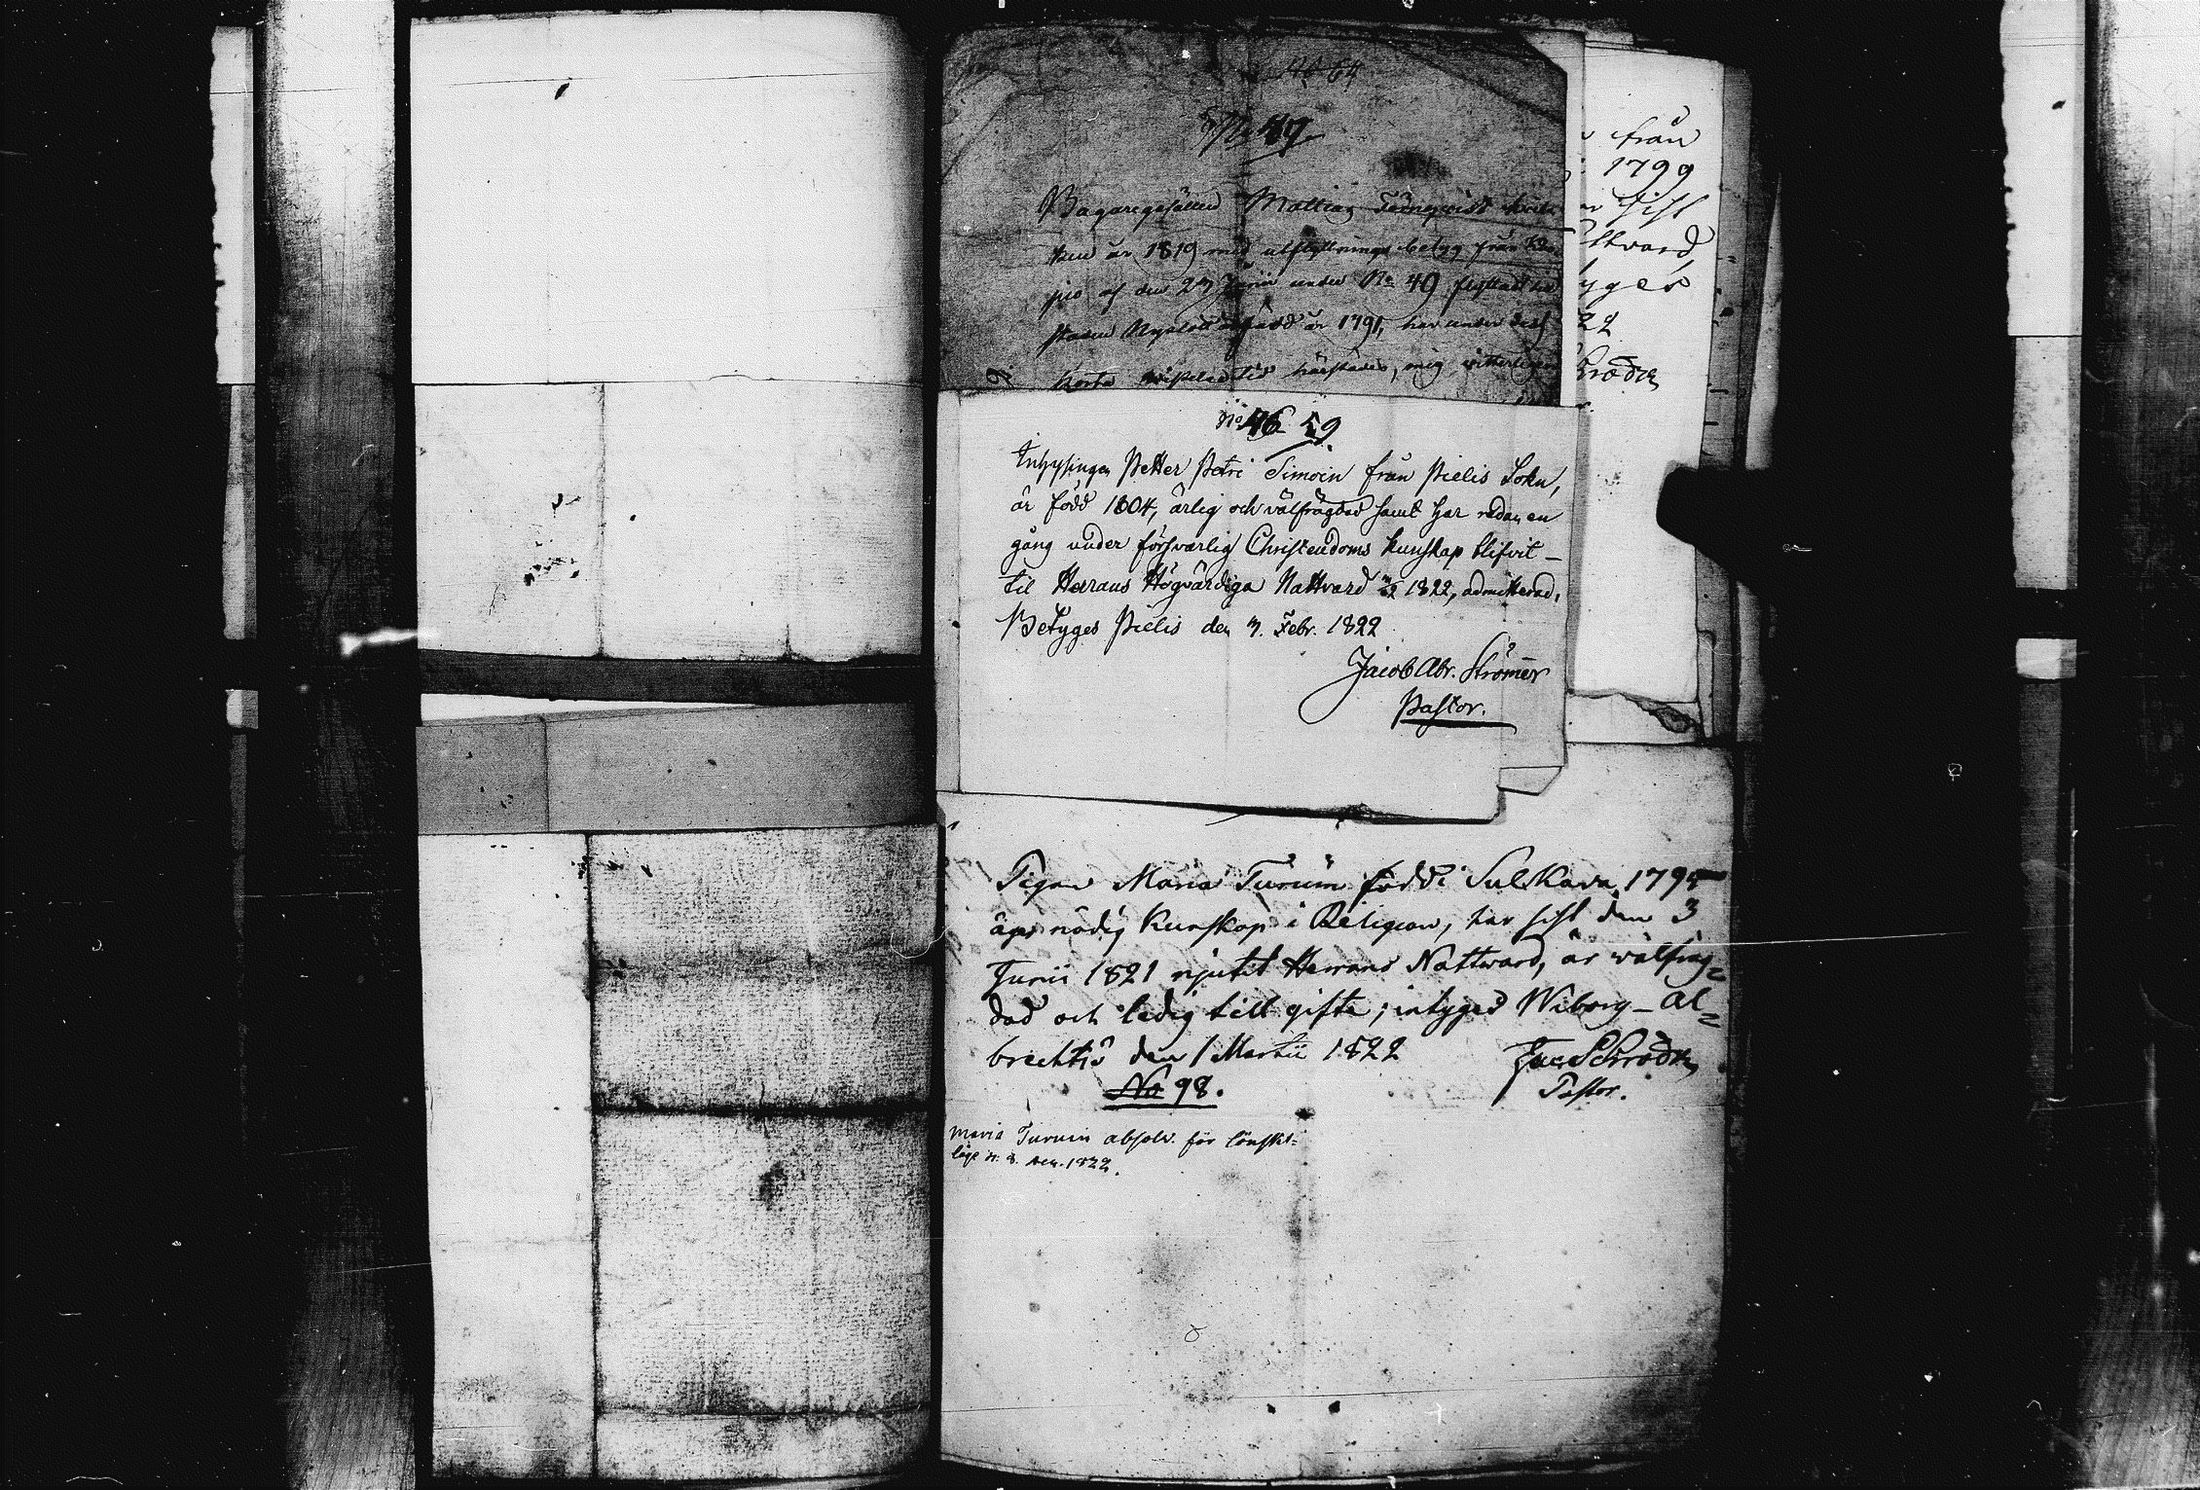 No 64
No 47
Bagaregesällen Mattias Törnqvist
år 1819 med utflyttnings betyg från
pio af den 27 Junii under No 49 flyttad
staden Nyslott född år 1791, har under dess
korta härstädes, mig witterligen
från
1799
sist
ttvard
yges
22
hroder
No 46 59
Inhysingen Petter Petri Simoin från Pielis Sokn,
är född 1804, ärlig och välfrägdad samt har redan en
gång under försvarlig Christendoms kunskap blifvit
til Herrans Högvärdiga Nattvard 3/2 1822, admitterad,
Betyges Pielis den 3. Febr. 1822
Jacob Abr. Strömer
Pastor.
Pigan Maria Turuin född i Sulkava 1795
äger nödig kunskap i Religion, har sist den 3
Junii 1821 njutit Herrans Nattward, är wälfräg=
dad och ledig till gifte; intyges Wiborg – Al=
brechtis den 1 Martii 1822
Jac Schroder
Pastor.
No 98.
Maria Turuin absolv. för lönska=
läge d. 8. 1822.